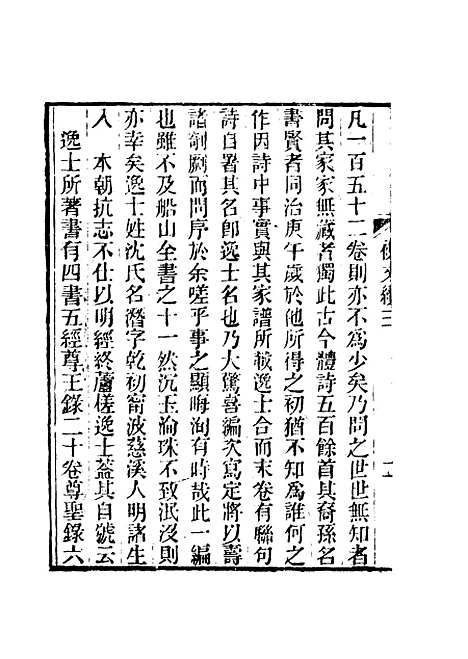 凡一百五十二卷則亦不爲少矣乃問之世世無知者
問其家家無藏者獨此古今體詩五百餘首其裔孫名
書賢者同治庚午歲於他所得之初猶不知爲誰何之
作因詩中事實與其家譜所載逸士合而末卷有聯句
詩自署其名卽逸士名也乃大驚喜編次寫定將以壽
諸剞劂而問序於余嗟乎事之顯晦洵有時哉此一編
也雖不及船山全書之十一然沉玉淪珠不致泯沒則
亦幸矣逸士姓沈氏名潛字乾初甯波慈溪人明諸生
入　本朝抗志不仕以明經終蘆槎逸士葢其自號云
逸士所著書有四書五經尊王錄二十卷尊聖錄六